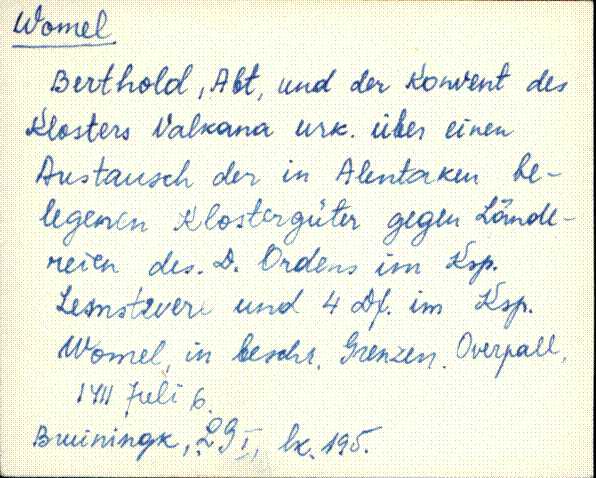 Womel
Berthold, Abt, und der Konvent des
Klosters Valkana urk. über einen
Austausch der in Alentaken be-
legenen Klostergüter gegen Lände-
reien des. D. Ordens im Ksp.
und 4 Df. im Ksp.
Womel, in beschr. Grenzen. Overpall,
Juli 6.
Bruiningk, LGI, lk. 195.